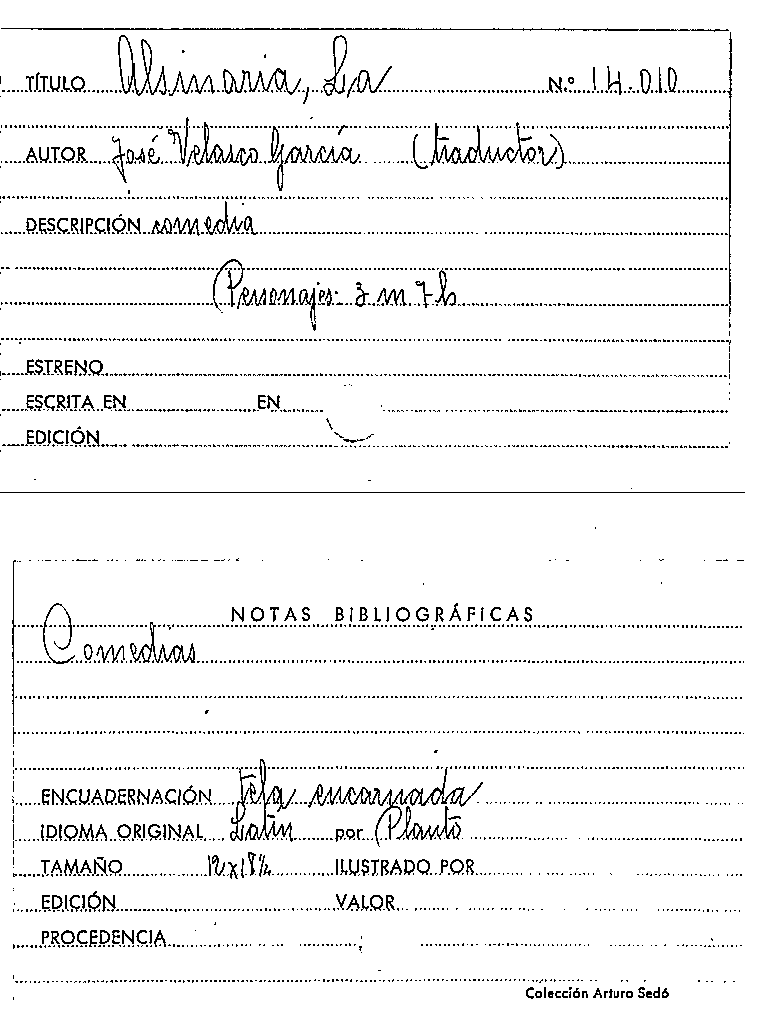 TÍTULO Alsinaria, La N.º 14.010
AUTOR José Velasco García (traductor)
DESCRIPCIÓN comedia
Personajes: 3 m 7 h
ESTRENO
ESCRITA EN EN
EDICIÓN
NOTAS BIBLIOGRÁFICAS
Comedias
ENCUADERNACIÓN Tela encarnada
IDIOMA ORIGINAL Latín por Plauto
TAMAÑO 12x18½ ILUSTRADO POR
EDICIÓN VALOR
PROCEDENCIA
Colección Arturo Sedó